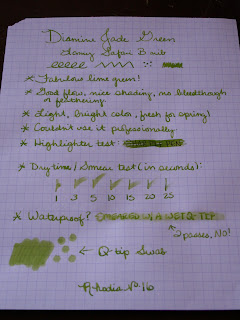 Diamine Jade Green
Lamy Safari B nib
* Fabulous lime green!
* Good flow, nice shading, no bleedthrough or feathering
* Light, bright color, fresh for spring!
* Couldn't use it professionally
* Highlighter test:
* Drytime/Smear test (in seconds):
1 3 5 10 15 20 25
* Waterproof? SMEARED W/ A WET Q-TIP
↑ 2 passes, NO!
← Q-tip Swab
Rhodia No. 16